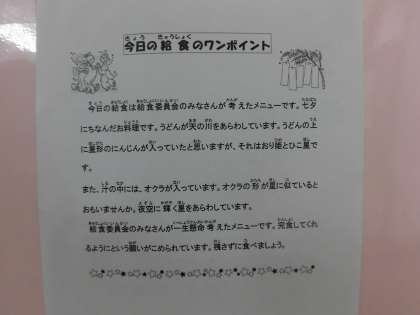 今日の給食のワンポイント
今日の給食は給食委員会のみなさんが考えたメニューです。七夕
にちなんだお料理です。うどんが天の川をあらわしています。うどんの上
に星形のにんじんが入っていたと思いますが、それはおり姫とひこ星で
す。
また、汁の中には、オクラが入っています。オクラの形が星に似ていると
おもいませんか。夜空に輝く星をあらわしています。
給食委員会のみなさんが一生懸命考えたメニューです。完食してくれ
るようにという願いがこめられています。残さずに食べましょう。